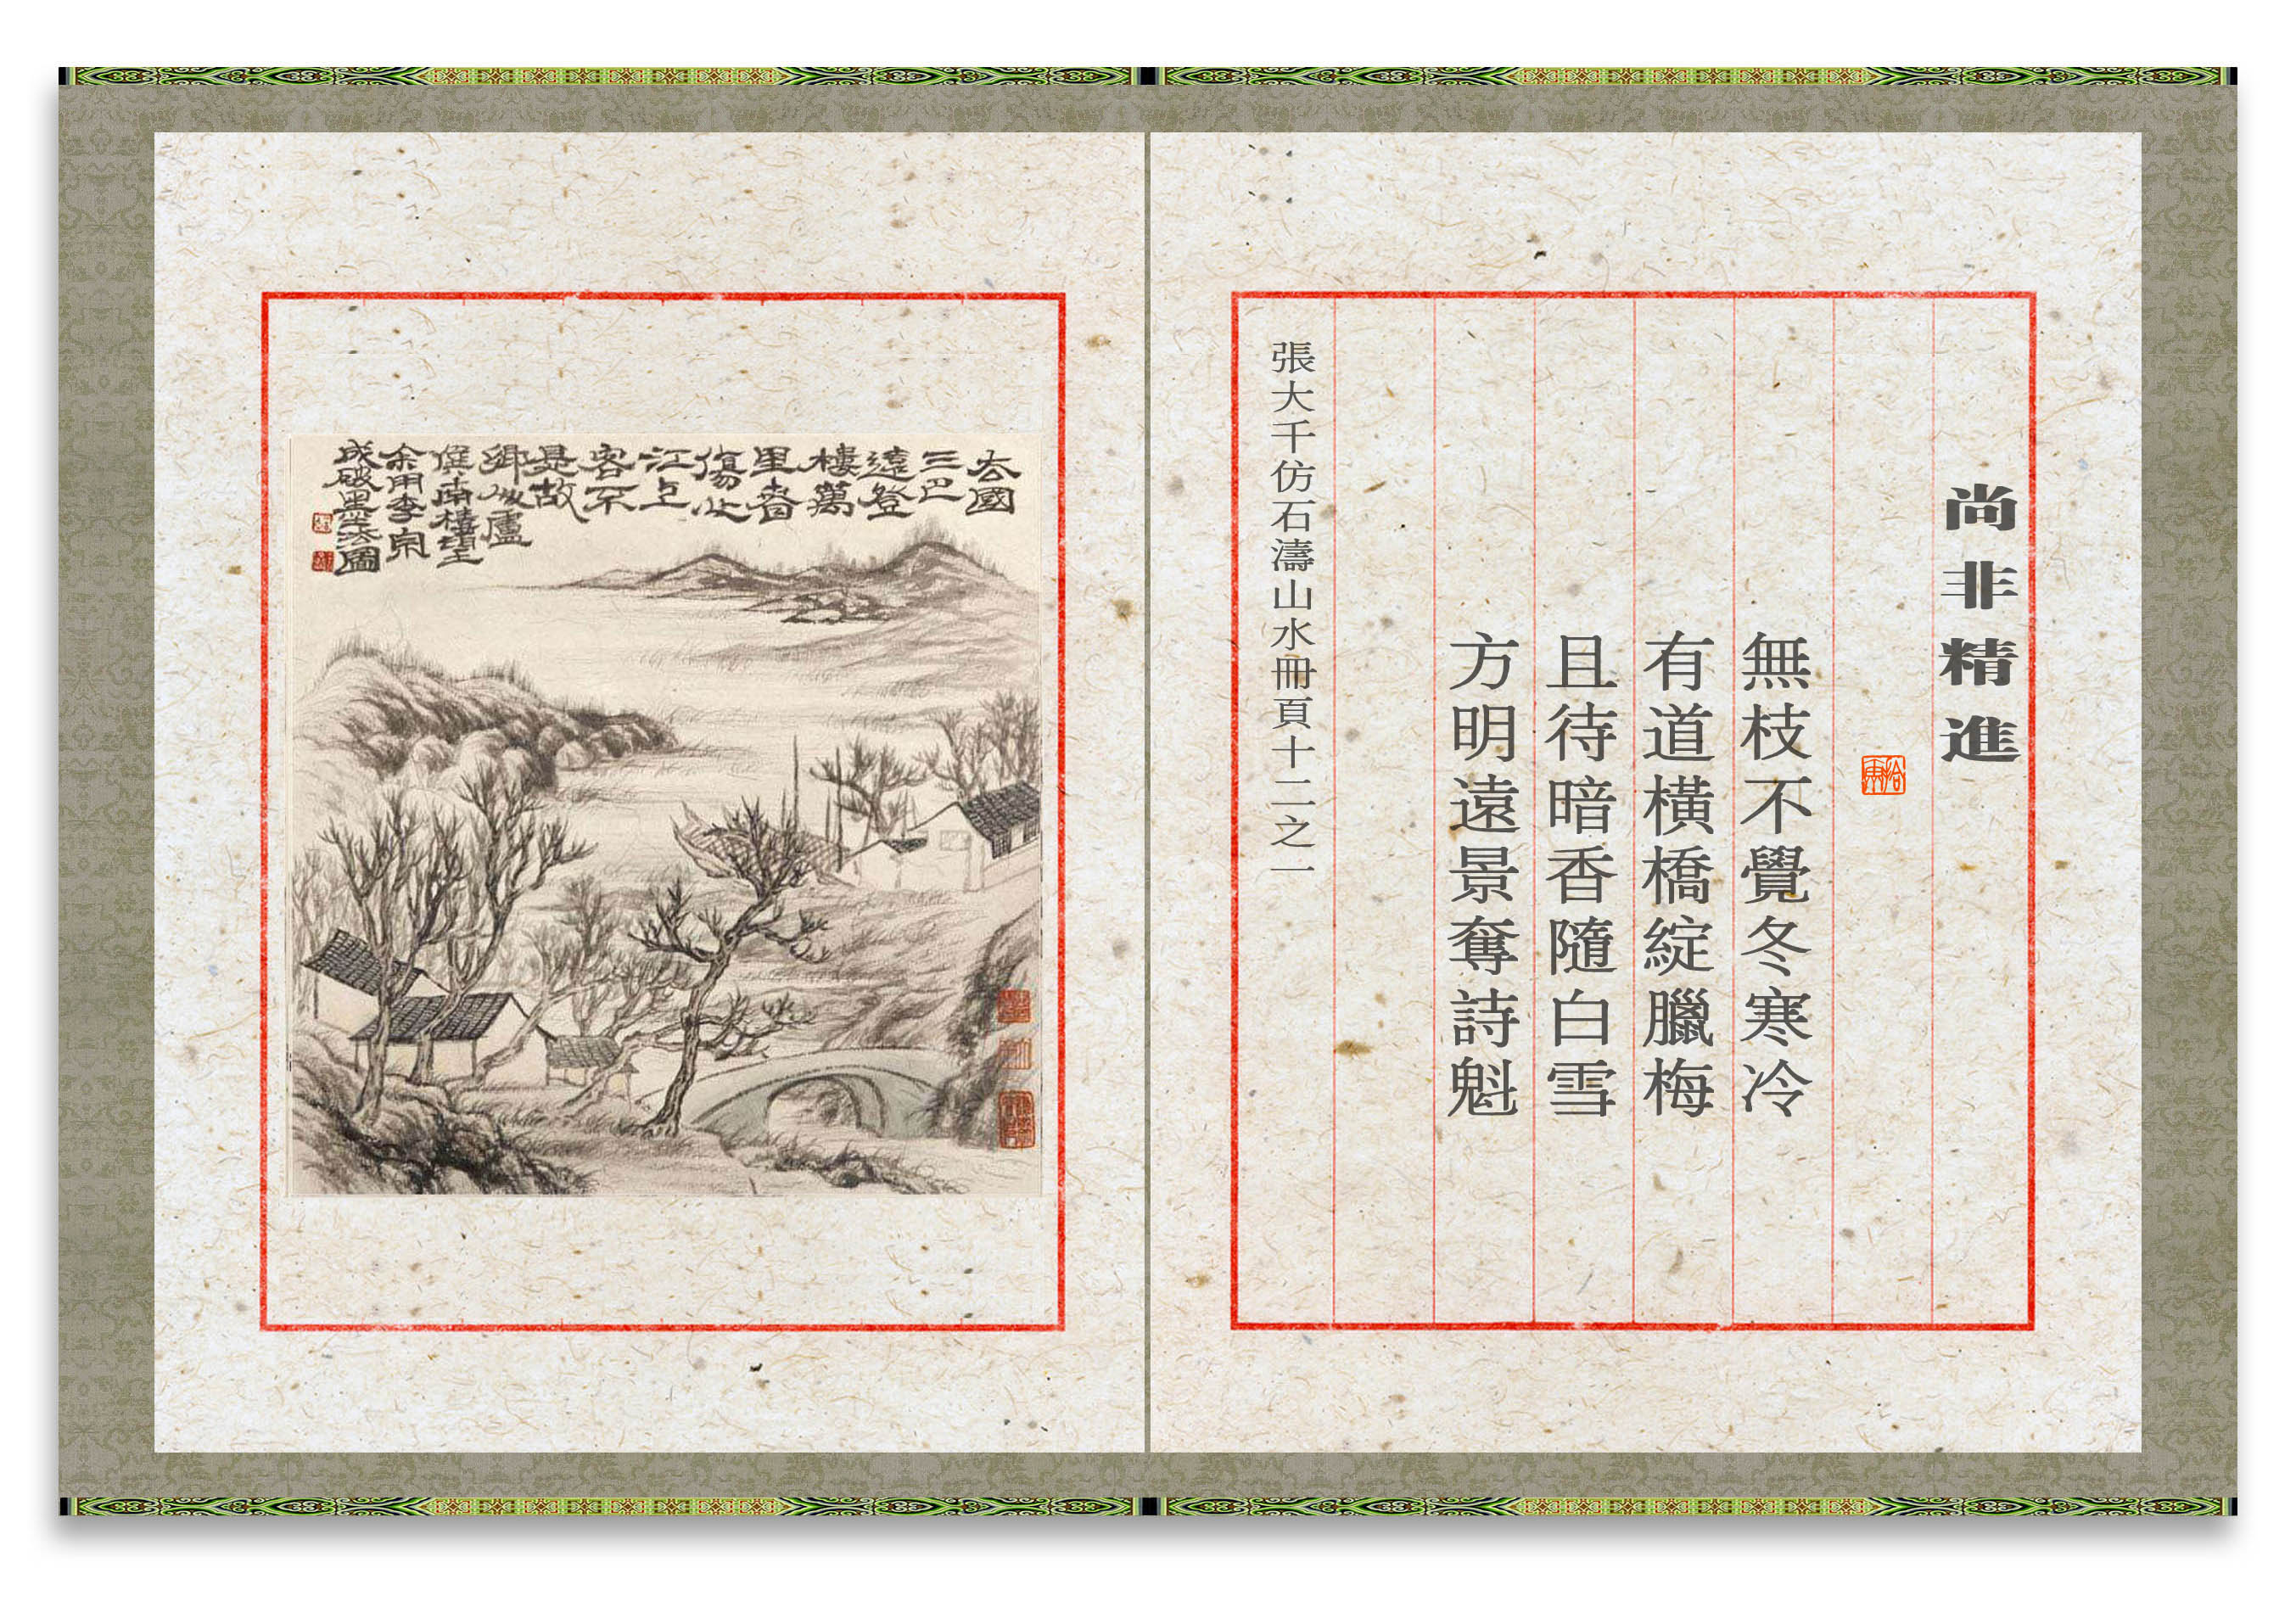 尚非精進
無枝不覺冬寒冷
有道橫橋綻臘梅
且待暗香隨白雪
方明遠景奪詩魁
張大千仿石濤山水冊頁十二之一
去國
三巴
遠登
樓萬
里春
傷心
江上
客不
是故
鄉人盧
僎南樓望
余用李宗
成破墨法圖